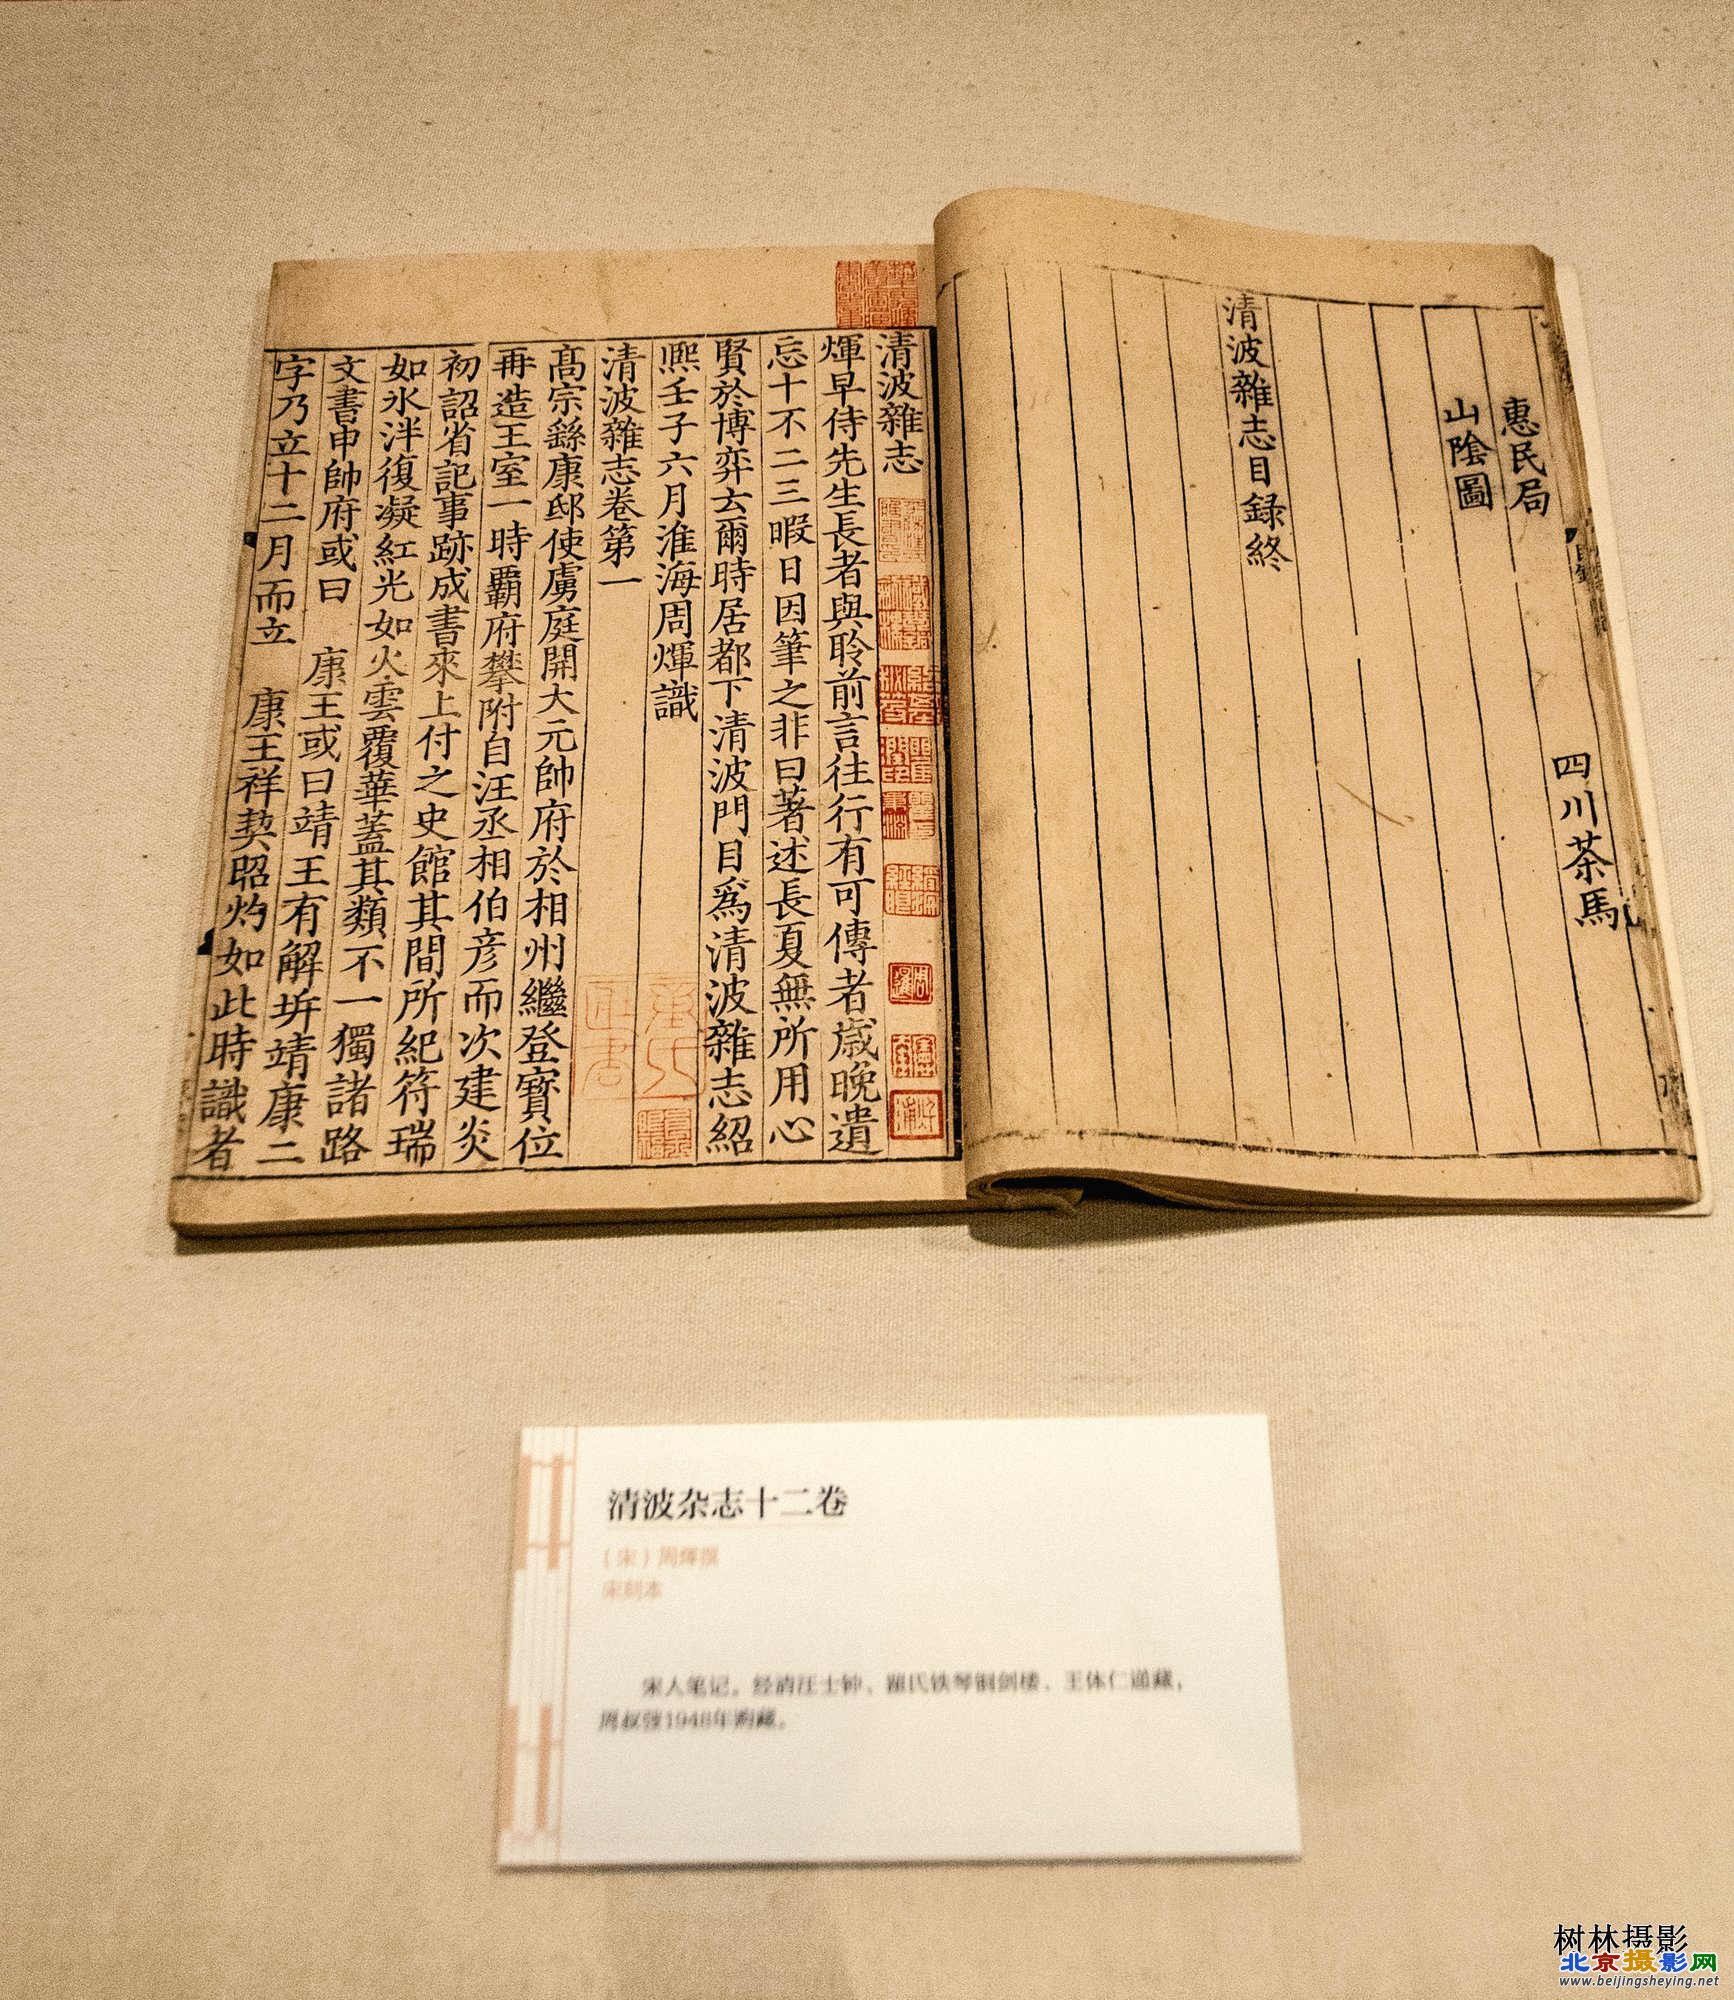 惠民局
四川茶馬
山陰圖
清波雜志目録終
清波雜志
煇早侍先生長者與聆前言往行有可傳者歲晚遺
忘十不二三暇日因筆之非曰著述長夏無所用心
賢於博弈云爾時居都下清波門目爲清波雜志紹
熈壬子六月淮海周煇識
清波雜志卷第一
髙宗繇康邸使虜庭開大元帥府於相州繼登寳位
再造王室一時覇府攀附自汪丞相伯彦而次建炎
初詔省記事跡成書來上付之史館其間所紀符瑞
如氷泮復凝紅光如火雲覆華蓋其類不一獨諸路
文書申帥府或曰 康王或曰靖王有解坼靖康二
字乃立十二月而立 康王祥契昭灼如此時識者
清波杂志十二卷
（宋）周煇撰
宋刻本
宋人笔记。经清汪士钟、瞿氏铁琴铜剑楼、王体仁递藏，
周叔弢1948年购藏。
树林摄影
北京摄影网
www.beijingsheying.net